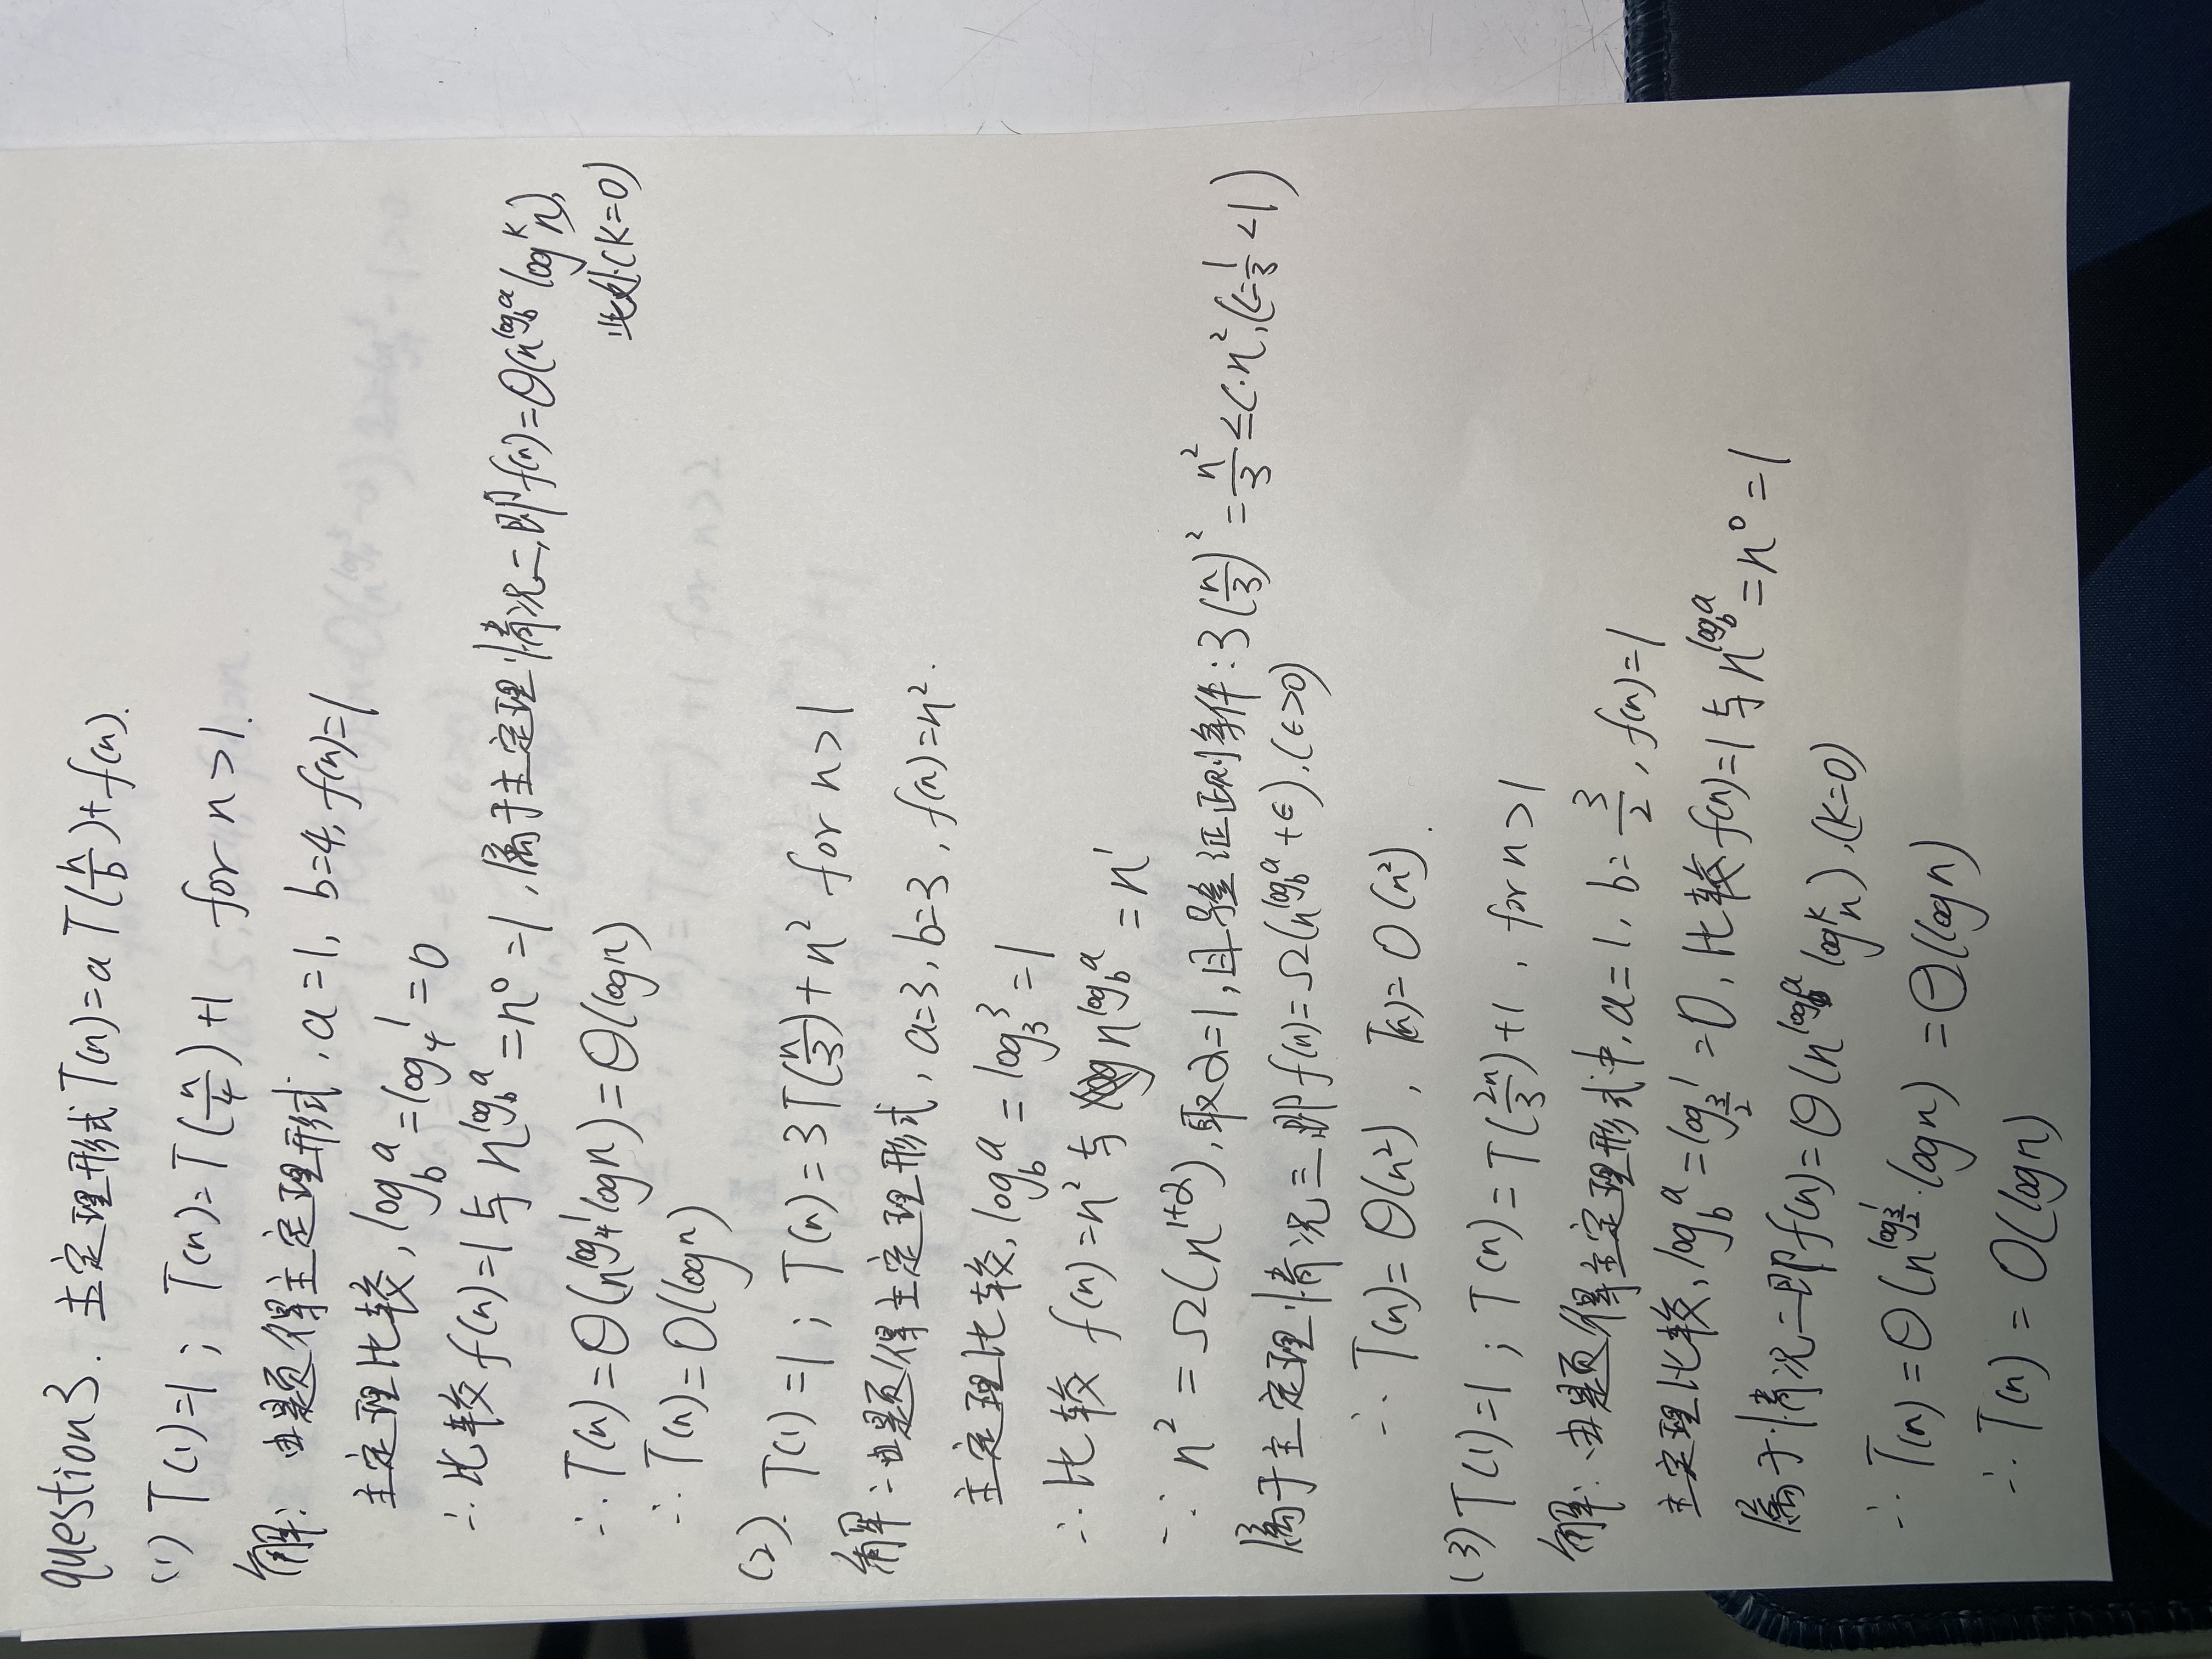 question3. 主定理形式 T(n)=a T(n/b)+f(n).
(1) T(1)=1; T(n)=T(n/4)+1 for n>1.
解: 由题得主定理形式, a=1, b=4, f(n)=1
主定理比较, log_b^a=log_4^1=0
∴比较 f(n)=1与 n^{log_b^a}=n^0=1, 属于主定理情况二,即f(n)=Θ(n^{log_b^a} log^k n),
此处(k=0)
∴ T(n)=Θ(n^{log_4^1} logn)=Θ(logn)
∴ T(n)=O(logn)
(2). T(1)=1; T(n)=3T(n/3)+n² for n>1
解:由题得主定理形式, a=3, b=3, f(n)=n².
主定理比较, log_b^a=log_3^3=1
∴比较 f(n)=n² 与 n^{log_b^a}=n^1
∵ n²=Ω(n^{1+α}), 取α=1, 且验证正则条件: 3(n/3)²=n²/3≤c·n²,(c=1/3<1)
属于主定理情况三,即f(n)=Ω(n^{log_b^a+ϵ}),(ϵ>0)
∴ T(n)=Θ(n²), T(n)=O(n²).
(3) T(1)=1; T(n)=T(2n/3)+1, for n>1
解: 由题得主定理形式中, a=1, b=3/2, f(n)=1
主定理比较, log_b^a=log_{3/2}^1=0, 比较 f(n)=1与 n^{log_b^a}=n^0=1
属于情况二即f(n)=Θ(n^{log_b^a} log^k n),(k=0)
∴ T(n)=Θ(n^{log_{3/2}^1}·logn)=Θ(logn)
∴ T(n)=O(logn)